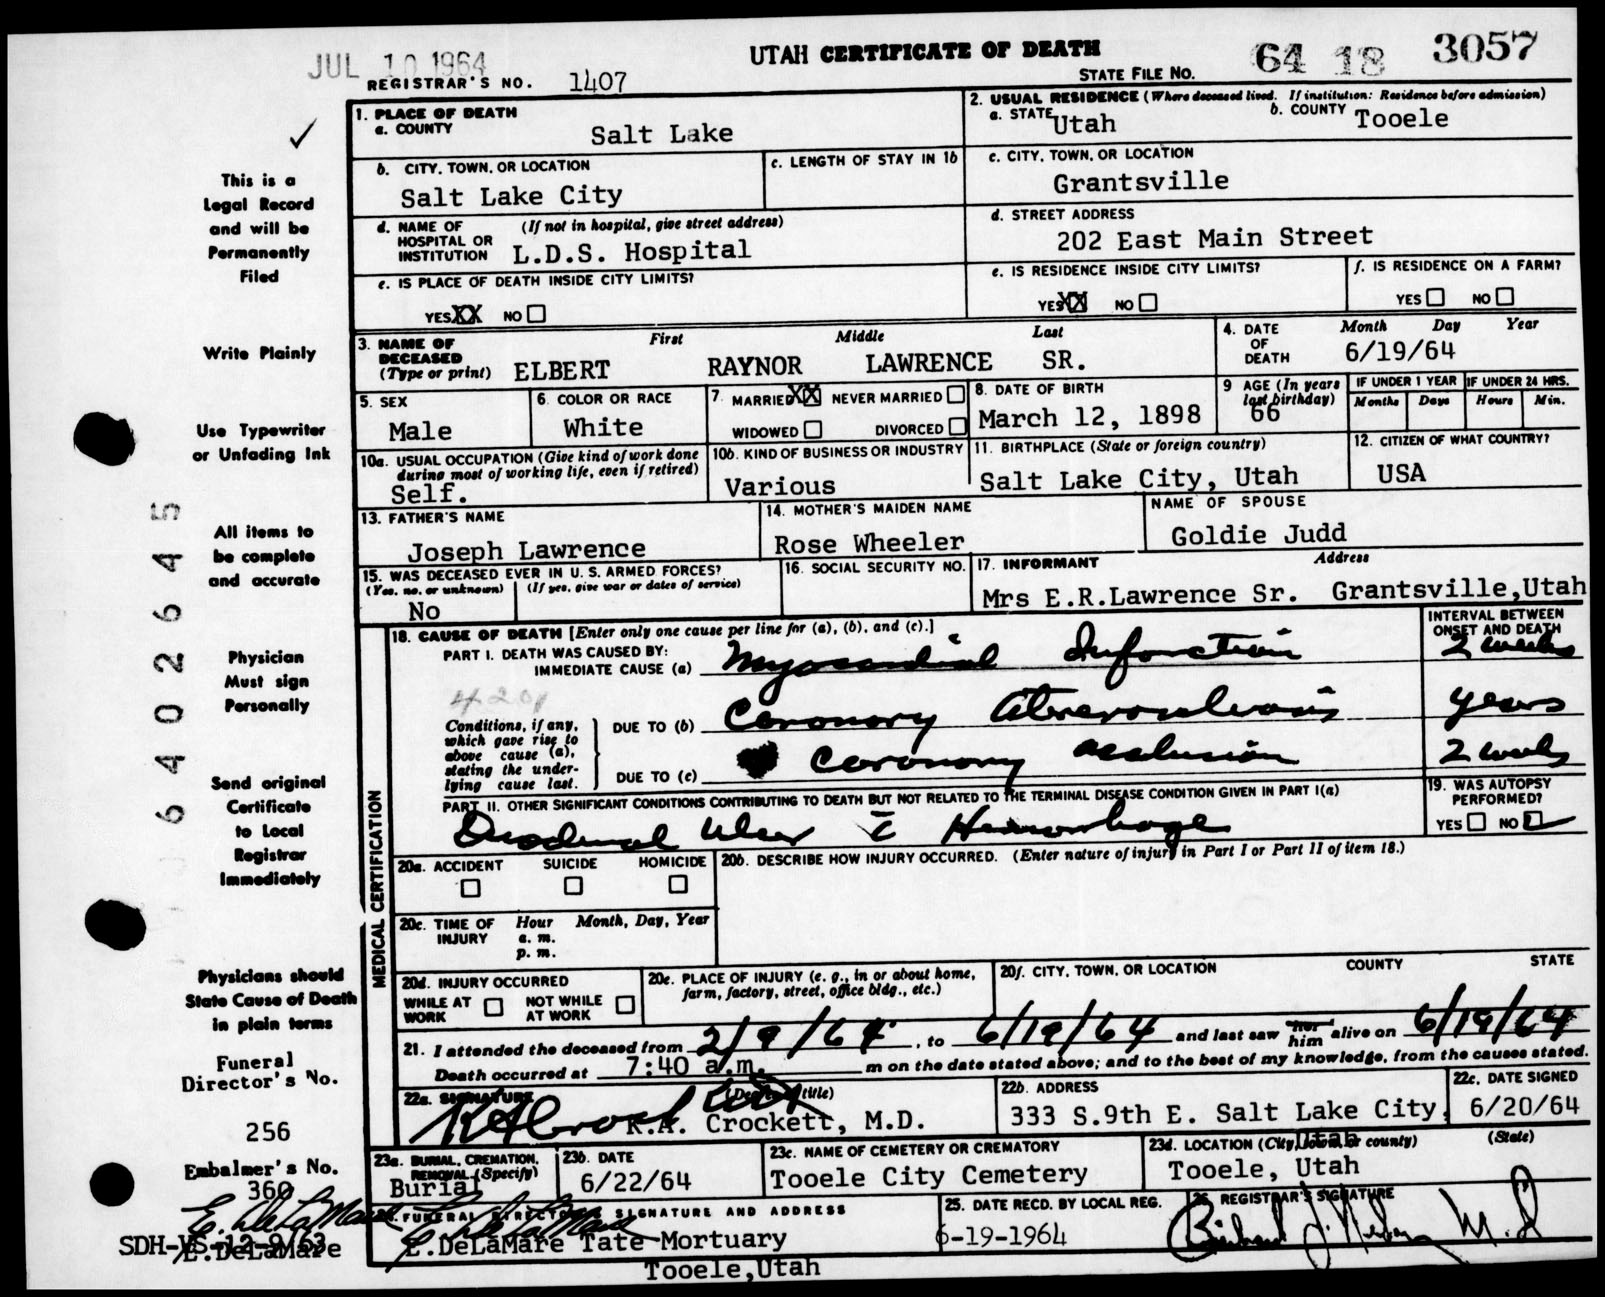 JUL 10 1964
UTAH CERTIFICATE OF DEATH
REGISTRAR'S NO. 1407
STATE FILE NO. 64 18 3057
1. PLACE OF DEATH
a. COUNTY Salt Lake
2. USUAL RESIDENCE (Where deceased lived. If institution: Residence before admission)
a. STATE Utah b. COUNTY Tooele
b. CITY, TOWN, OR LOCATION
Salt Lake City
c. LENGTH OF STAY IN 1b
c. CITY, TOWN, OR LOCATION
Grantsville
d. NAME OF HOSPITAL OR INSTITUTION (If not in hospital, give street address)
L.D.S. Hospital
d. STREET ADDRESS
202 East Main Street
e. IS PLACE OF DEATH INSIDE CITY LIMITS?
YES XX NO
e. IS RESIDENCE INSIDE CITY LIMITS?
YES XX NO
f. IS RESIDENCE ON A FARM?
YES NO
3. NAME OF DECEASED (Type or print) First Middle Last
ELBERT RAYNOR LAWRENCE SR.
4. DATE OF DEATH Month Day Year
6/19/64
5. SEX
Male
6. COLOR OR RACE
White
7. MARRIED XX NEVER MARRIED
WIDOWED DIVORCED
8. DATE OF BIRTH
March 12, 1898
9 AGE (In years last birthday)
66
IF UNDER 1 YEAR
Months Days
IF UNDER 24 HRS.
Hours Min.
10a. USUAL OCCUPATION (Give kind of work done during most of working life, even if retired)
Self.
10b. KIND OF BUSINESS OR INDUSTRY
Various
11. BIRTHPLACE (State or foreign country)
Salt Lake City, Utah
12. CITIZEN OF WHAT COUNTRY?
USA
13. FATHER'S NAME
Joseph Lawrence
14. MOTHER'S MAIDEN NAME
Rose Wheeler
NAME OF SPOUSE
Goldie Judd
15. WAS DECEASED EVER IN U. S. ARMED FORCES?
(Yes, no, or unknown) (If yes, give war or dates of service)
No
16. SOCIAL SECURITY NO.
17. INFORMANT Address
Mrs E.R.Lawrence Sr. Grantsville,Utah
MEDICAL CERTIFICATION
18. CAUSE OF DEATH [Enter only one cause per line for (a), (b), and (c).]
INTERVAL BETWEEN ONSET AND DEATH
PART I. DEATH WAS CAUSED BY:
IMMEDIATE CAUSE (a) Myocardial Infarction 2 weeks
4201
Conditions, if any, which gave rise to above cause (a), stating the underlying cause last.
DUE TO (b) Coronary Atherosclerosis years
DUE TO (c) Coronary occlusion 2 weeks
PART II. OTHER SIGNIFICANT CONDITIONS CONTRIBUTING TO DEATH BUT NOT RELATED TO THE TERMINAL DISEASE CONDITION GIVEN IN PART I(a)
Duodenal Ulcer c Hemorrhage
19. WAS AUTOPSY PERFORMED?
YES NO
20a. ACCIDENT SUICIDE HOMICIDE
20b. DESCRIBE HOW INJURY OCCURRED. (Enter nature of injury in Part I or Part II of item 18.)
20c. TIME OF INJURY Hour Month, Day, Year
a. m.
p. m.
20d. INJURY OCCURRED
WHILE AT WORK NOT WHILE AT WORK
20e. PLACE OF INJURY (e. g., in or about home, farm, factory, street, office bldg., etc.)
20f. CITY, TOWN, OR LOCATION COUNTY STATE
21. I attended the deceased from 2/9/64, to 6/19/64 and last saw her him alive on 6/19/64
Death occurred at 7:40 a.m. m on the date stated above; and to the best of my knowledge, from the causes stated.
22a. SIGNATURE (Degree or title)
K.A. Crockett, M.D.
22b. ADDRESS
333 S.9th E. Salt Lake City, Utah
22c. DATE SIGNED
6/20/64
23a. BURIAL, CREMATION, REMOVAL (Specify)
Burial
23b. DATE
6/22/64
23c. NAME OF CEMETERY OR CREMATORY
Tooele City Cemetery
23d. LOCATION (City, town, or county) (State)
Tooele, Utah
24. FUNERAL DIRECTOR'S SIGNATURE AND ADDRESS
E. DeLaMare
E.DeLaMare Tate Mortuary
Tooele,Utah
25. DATE RECD. BY LOCAL REG.
6-19-1964
26. REGISTRAR'S SIGNATURE
This is a
Legal Record
and will be
Permanently
Filed
Write Plainly
Use Typewriter
or Unfading Ink
All items to
be complete
and accurate
Physician
Must sign
Personally
Send original
Certificate
to Local
Registrar
Immediately
Physicians should
State Cause of Death
in plain terms
Funeral
Director's No.
256
Embalmer's No.
360
E. DeLaMare
SDH-VS-12-9/63
E.DeLaMare
64026445